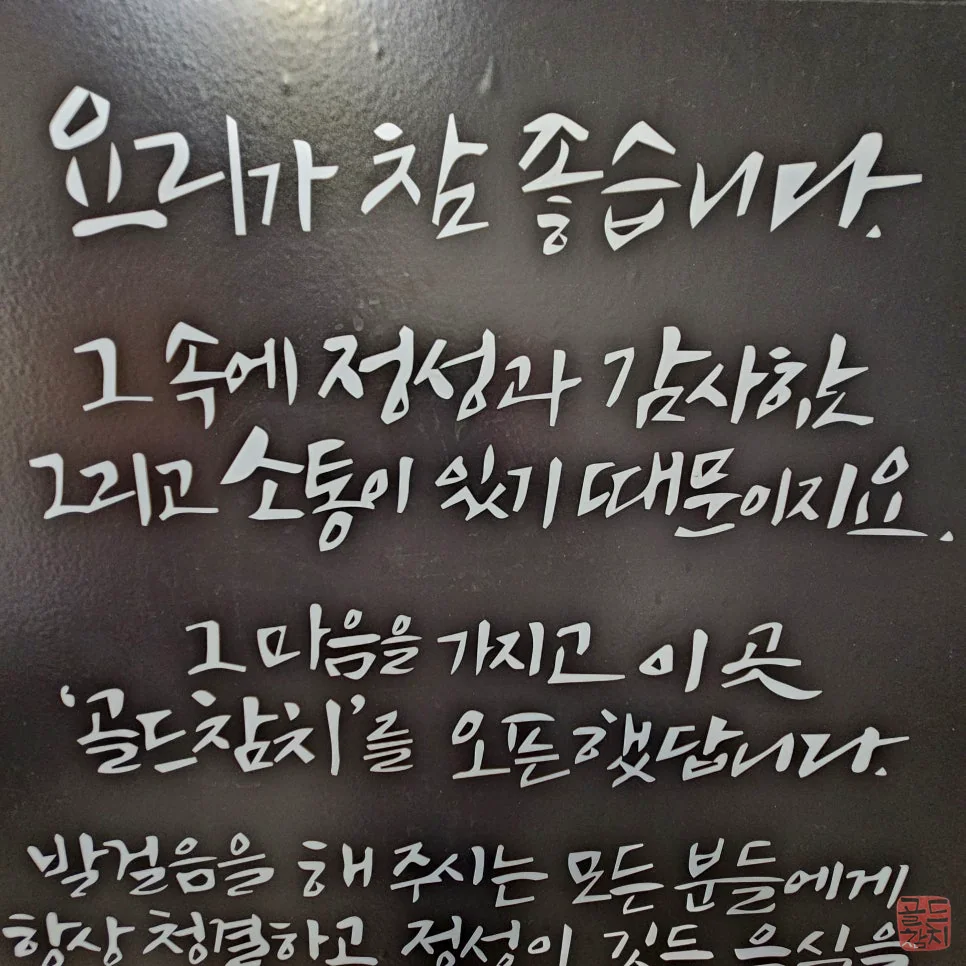 요리가 참 좋습니다.
그 속에 정성과 감사하는
그리고 소통이 있기 때문이지요.
그 마음을 가지고 이 곳
'골드참치'를 오픈했답니다.
발걸음을 해 주시는 모든 분들에게
항상 청결하고 정성이 깃든 음식을
골드
참치